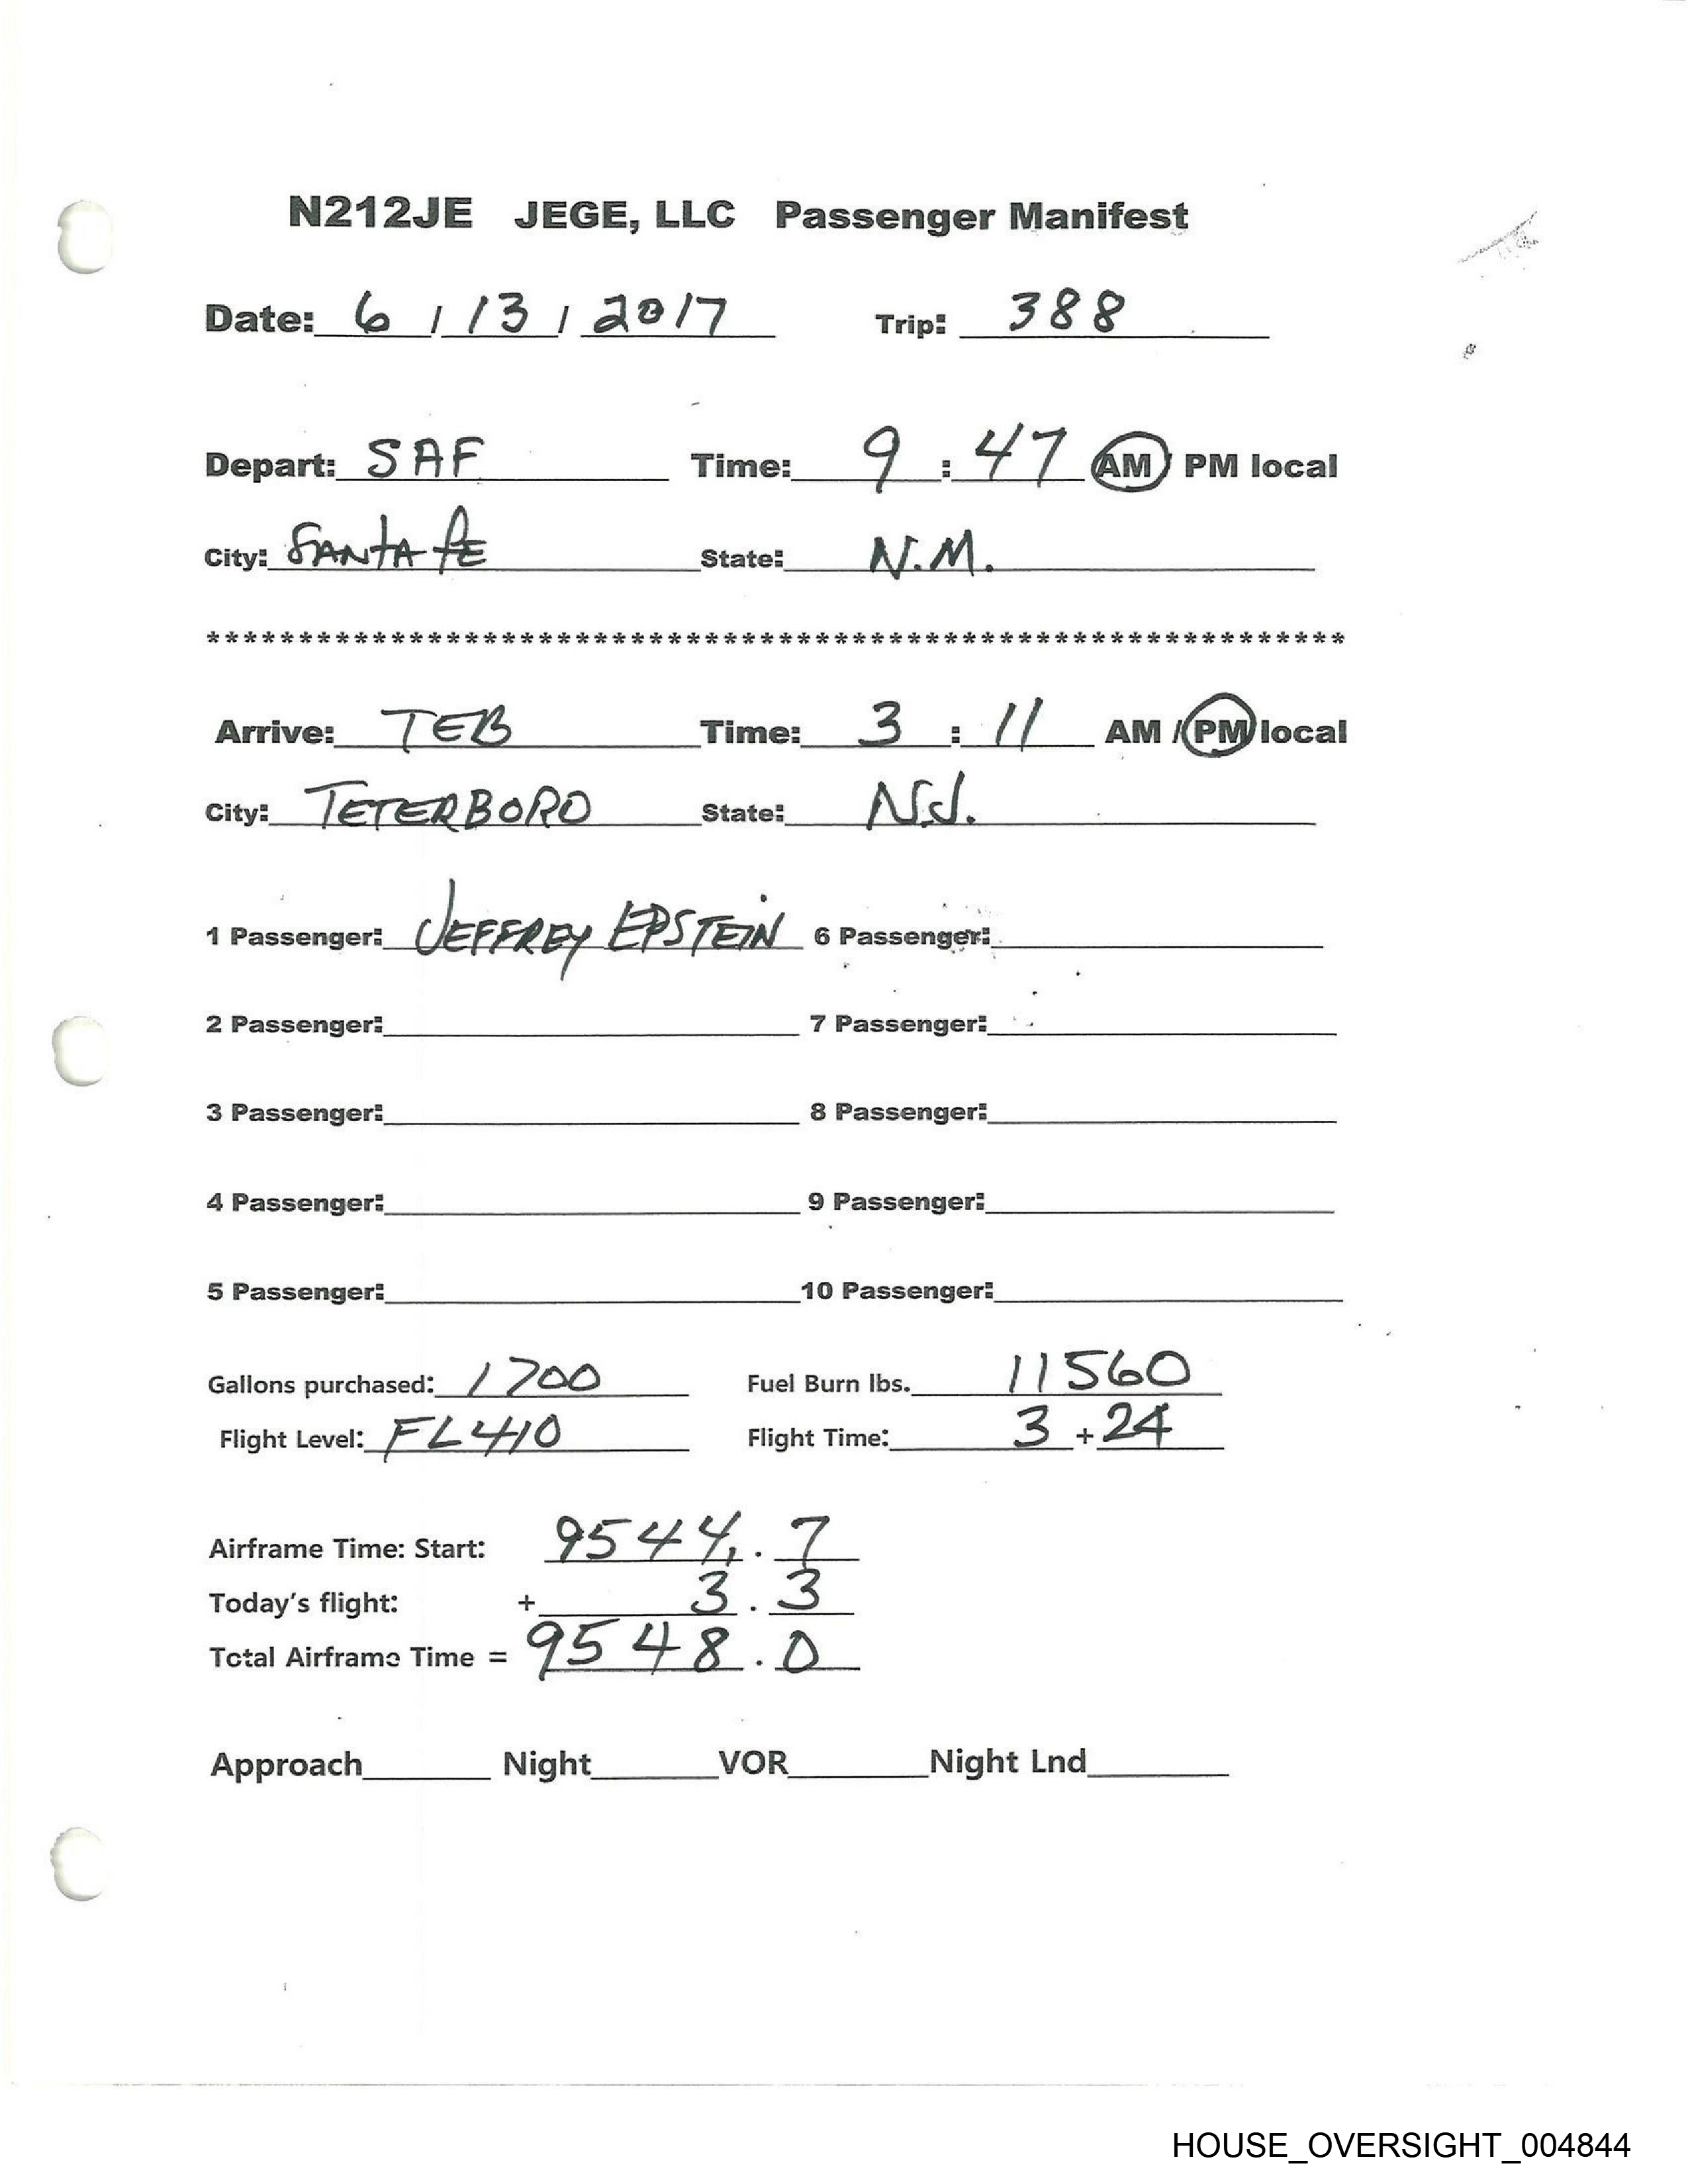 N212JE JEGE, LLC Passenger Manifest
Date: 6 / 13 / 2017 Trip: 388
Depart: SAF Time: 9 : 47 AM / PM local
City: SANTA FE State: N.M.
**************************************************************
Arrive: TEB Time: 3 : 11 AM / PM local
City: TETERBORO State: N.J.
1 Passenger: JEFFREY EPSTEIN 6 Passenger:
2 Passenger: 7 Passenger:
3 Passenger: 8 Passenger:
4 Passenger: 9 Passenger:
5 Passenger: 10 Passenger:
Gallons purchased: 1700 Fuel Burn lbs. 11560
Flight Level: FL410 Flight Time: 3 + 24
Airframe Time: Start: 9544 . 7
Today's flight: + 3 . 3
Total Airframe Time = 9548 . 0
Approach Night VOR Night Lnd
HOUSE_OVERSIGHT_004844